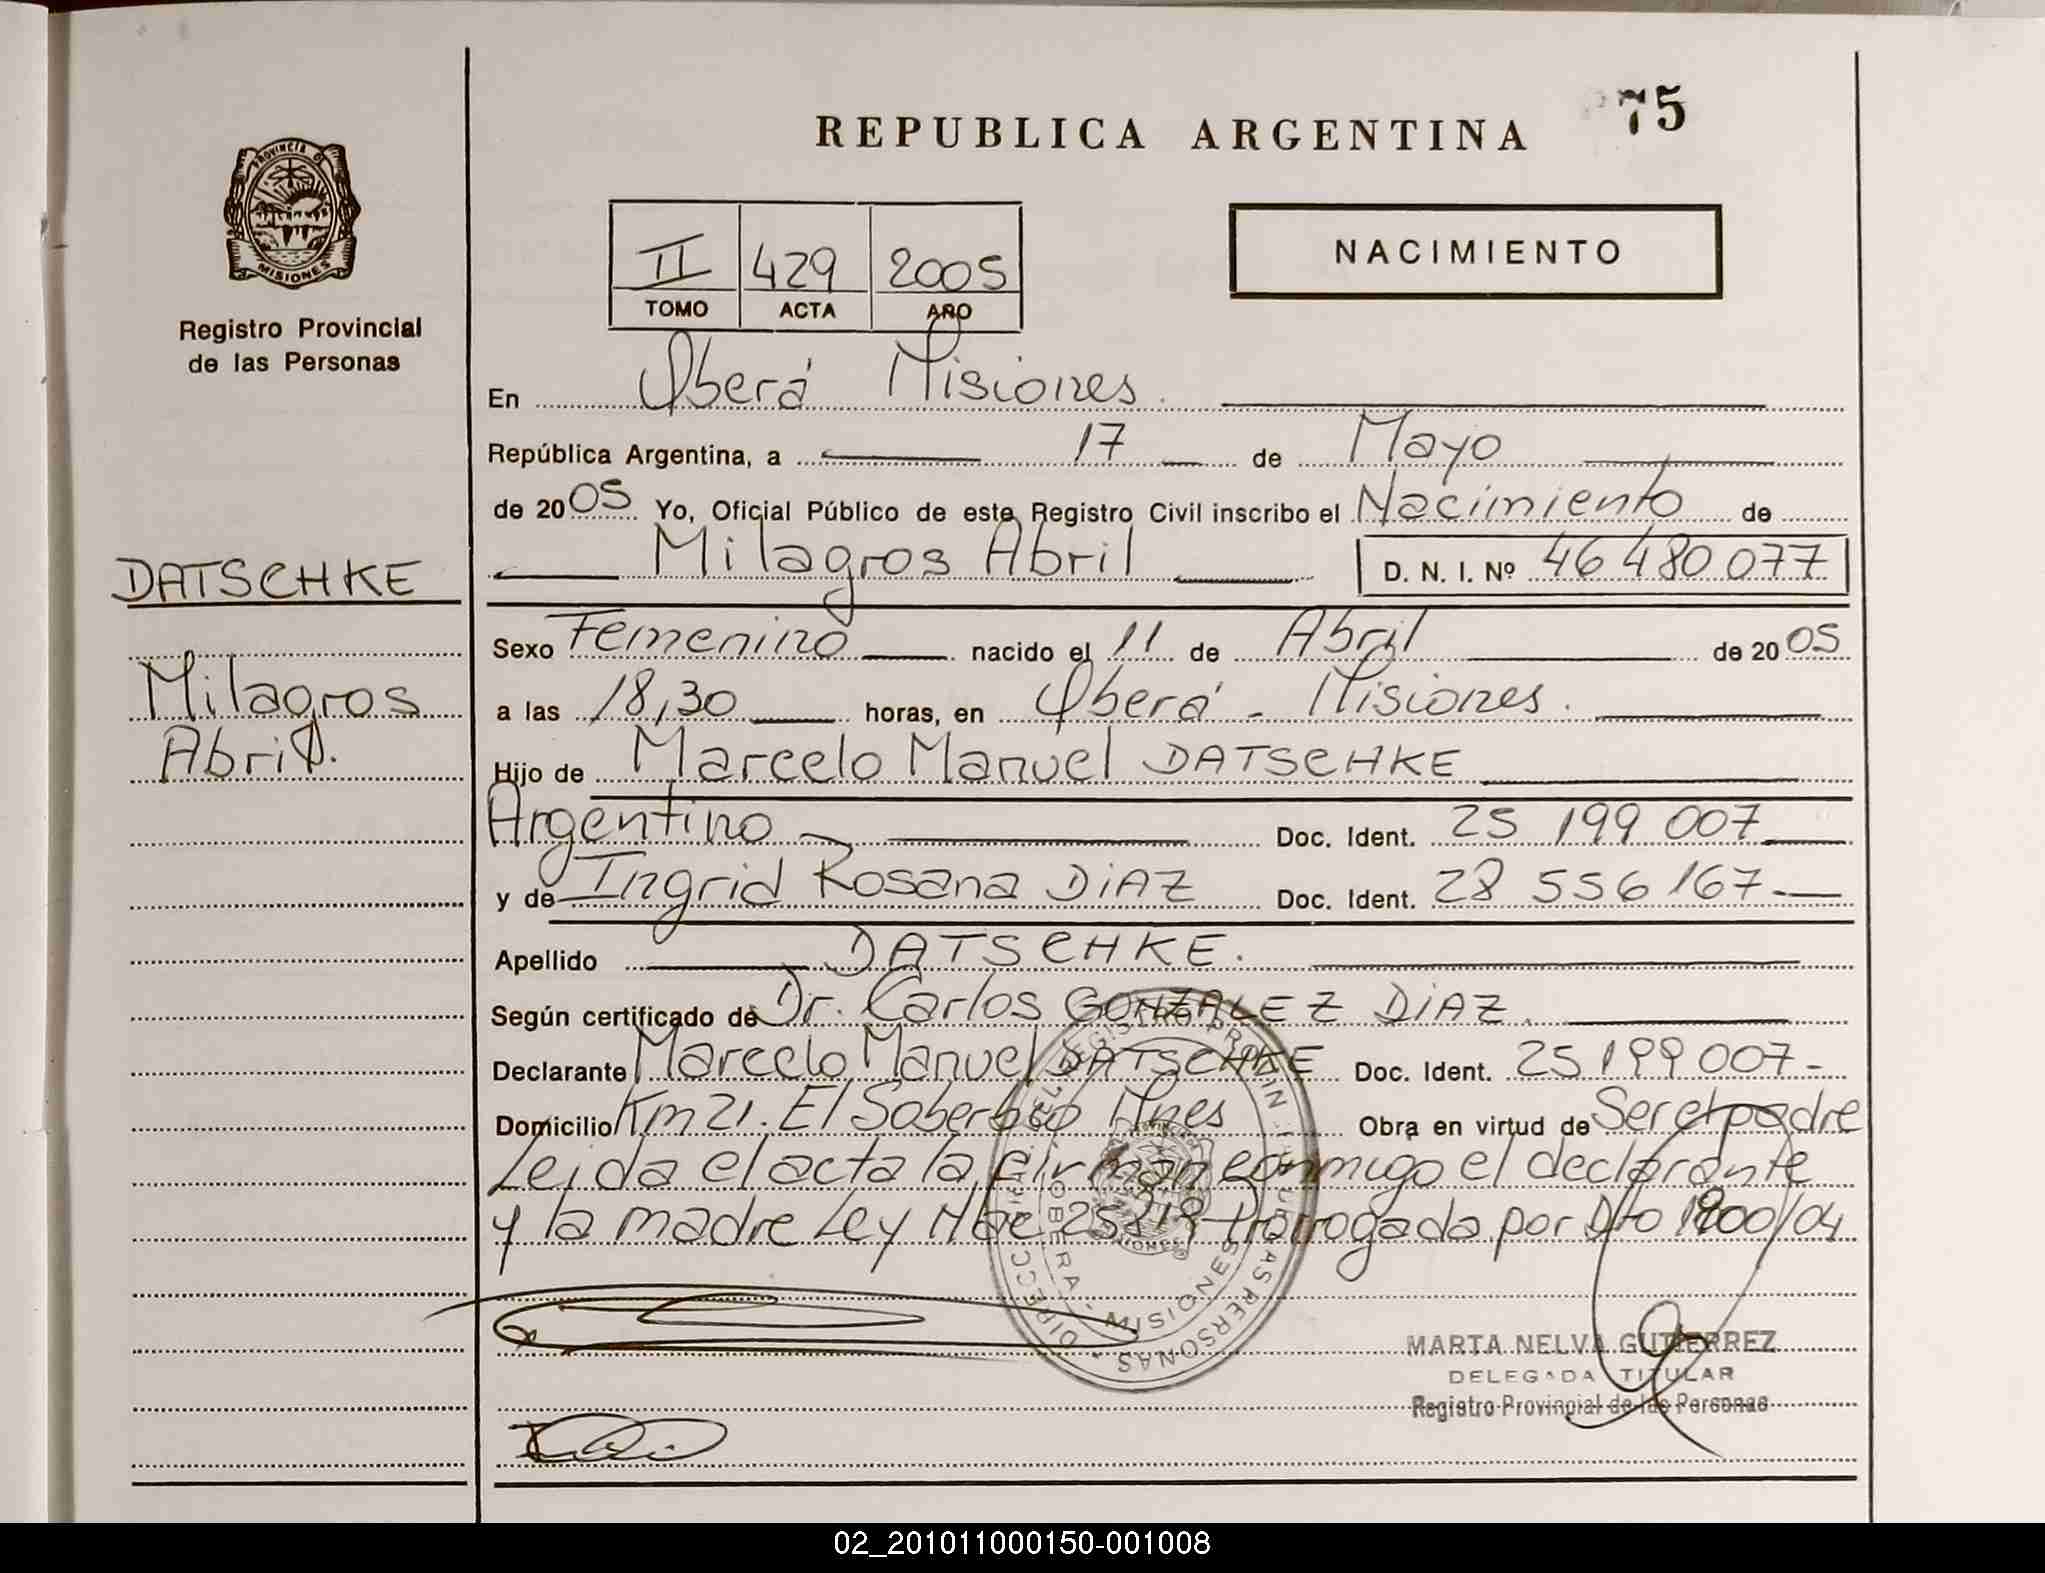 75
REPUBLICA ARGENTINA
PROVINCIA D
MISIONES
Registro Provincial
de las Personas
NACIMIENTO
II 429 2005
TOMO ACTA AÑO
En Oberá Misiones.
República Argentina, a 17 de Mayo
de 2005 Yo, Oficial Público de este Registro Civil inscribo el Nacimiento de
Milagros Abril D. N. I. Nº 46 480 077
DATSCHKE
Milagros
Abril.
Sexo Femenino nacido el 11 de Abril de 2005
a las 18,30 horas, en Oberá - Misiones.
Hijo de Marcelo Manuel DATSCHKE
Argentino Doc. Ident. 25 199 007
y de Ingrid Rosana DIAZ Doc. Ident. 28 556 167.
Apellido DATSCHKE.
Según certificado de Dr. Carlos GONZALEZ DIAZ.
Declarante Marcelo Manuel DATSCHKE Doc. Ident. 25 199 007-
Domicilio Km 21. El Soberbio Mnes Obra en virtud de Ser el padre
Leida el acta la firman conmigo el declarante
y la madre Ley Nac 25819 Prorrogada por Dto 1900/04
MARTA NELVA GUTIERREZ
DELEGADA TITULAR
Registro Provincial de las Personas
OBERA - MISIONES
02_201011000150-001008